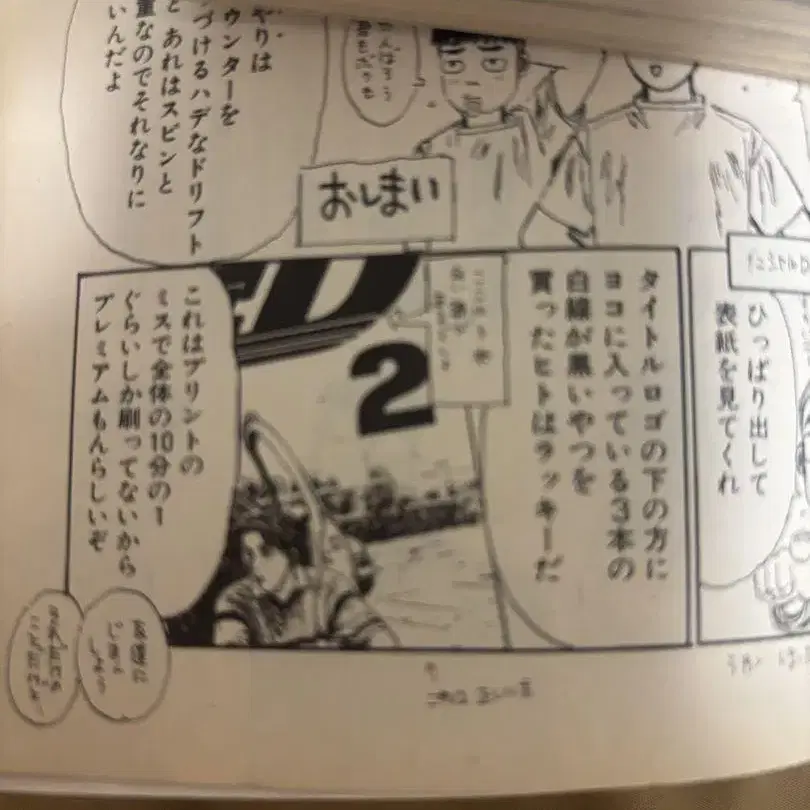 やりは
ウンターを
づけるハデなドリフト
と あれはスピンと
重なのでそれなりに
いんだよ
おしまい
ひっぱり出して
表紙を見てくれ
タイトルロゴの下の方に
ヨコに入っている3本の
白線が黒いやつを
買ったヒトはラッキーだ
D
2
これはプリントの
ミスで全体の10分の1
ぐらいしか刷ってないから
プレミアムもんらしいぞ
友達に